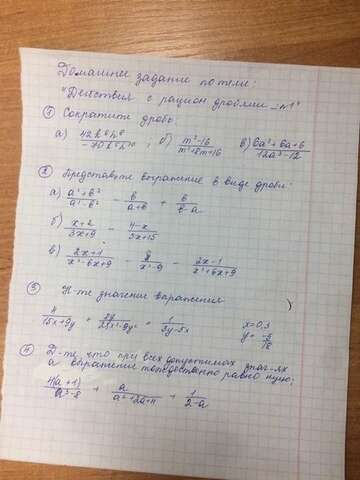 Домашнее задание по теме:
"Действия с рацион дробями
① Сократите дробь:
а) ; б) m²-16 / m²+8m+16 в) 6a²+6a+6 / 12a³-12
② Представьте выражение в виде дроби:
а) a²+b² / a²-b² - b / a+b + b / b-a
б) x+2 / 3x+9 - 4-x / 5x+15
в) 2x+1 / x²-6x+9 - 8 / x²-9 - 2x-1 / x²+6x+9
③ Н-те значение выражения
4 / 15x+9y + 1 / 3y-5x x=0,3
y=
④ Д-те, что при всех допустимых знач-ях
a выражение тождественно равно нулю:
4(a+1) / a³-8 + a / a²+2a+4 + 1 / 2-a